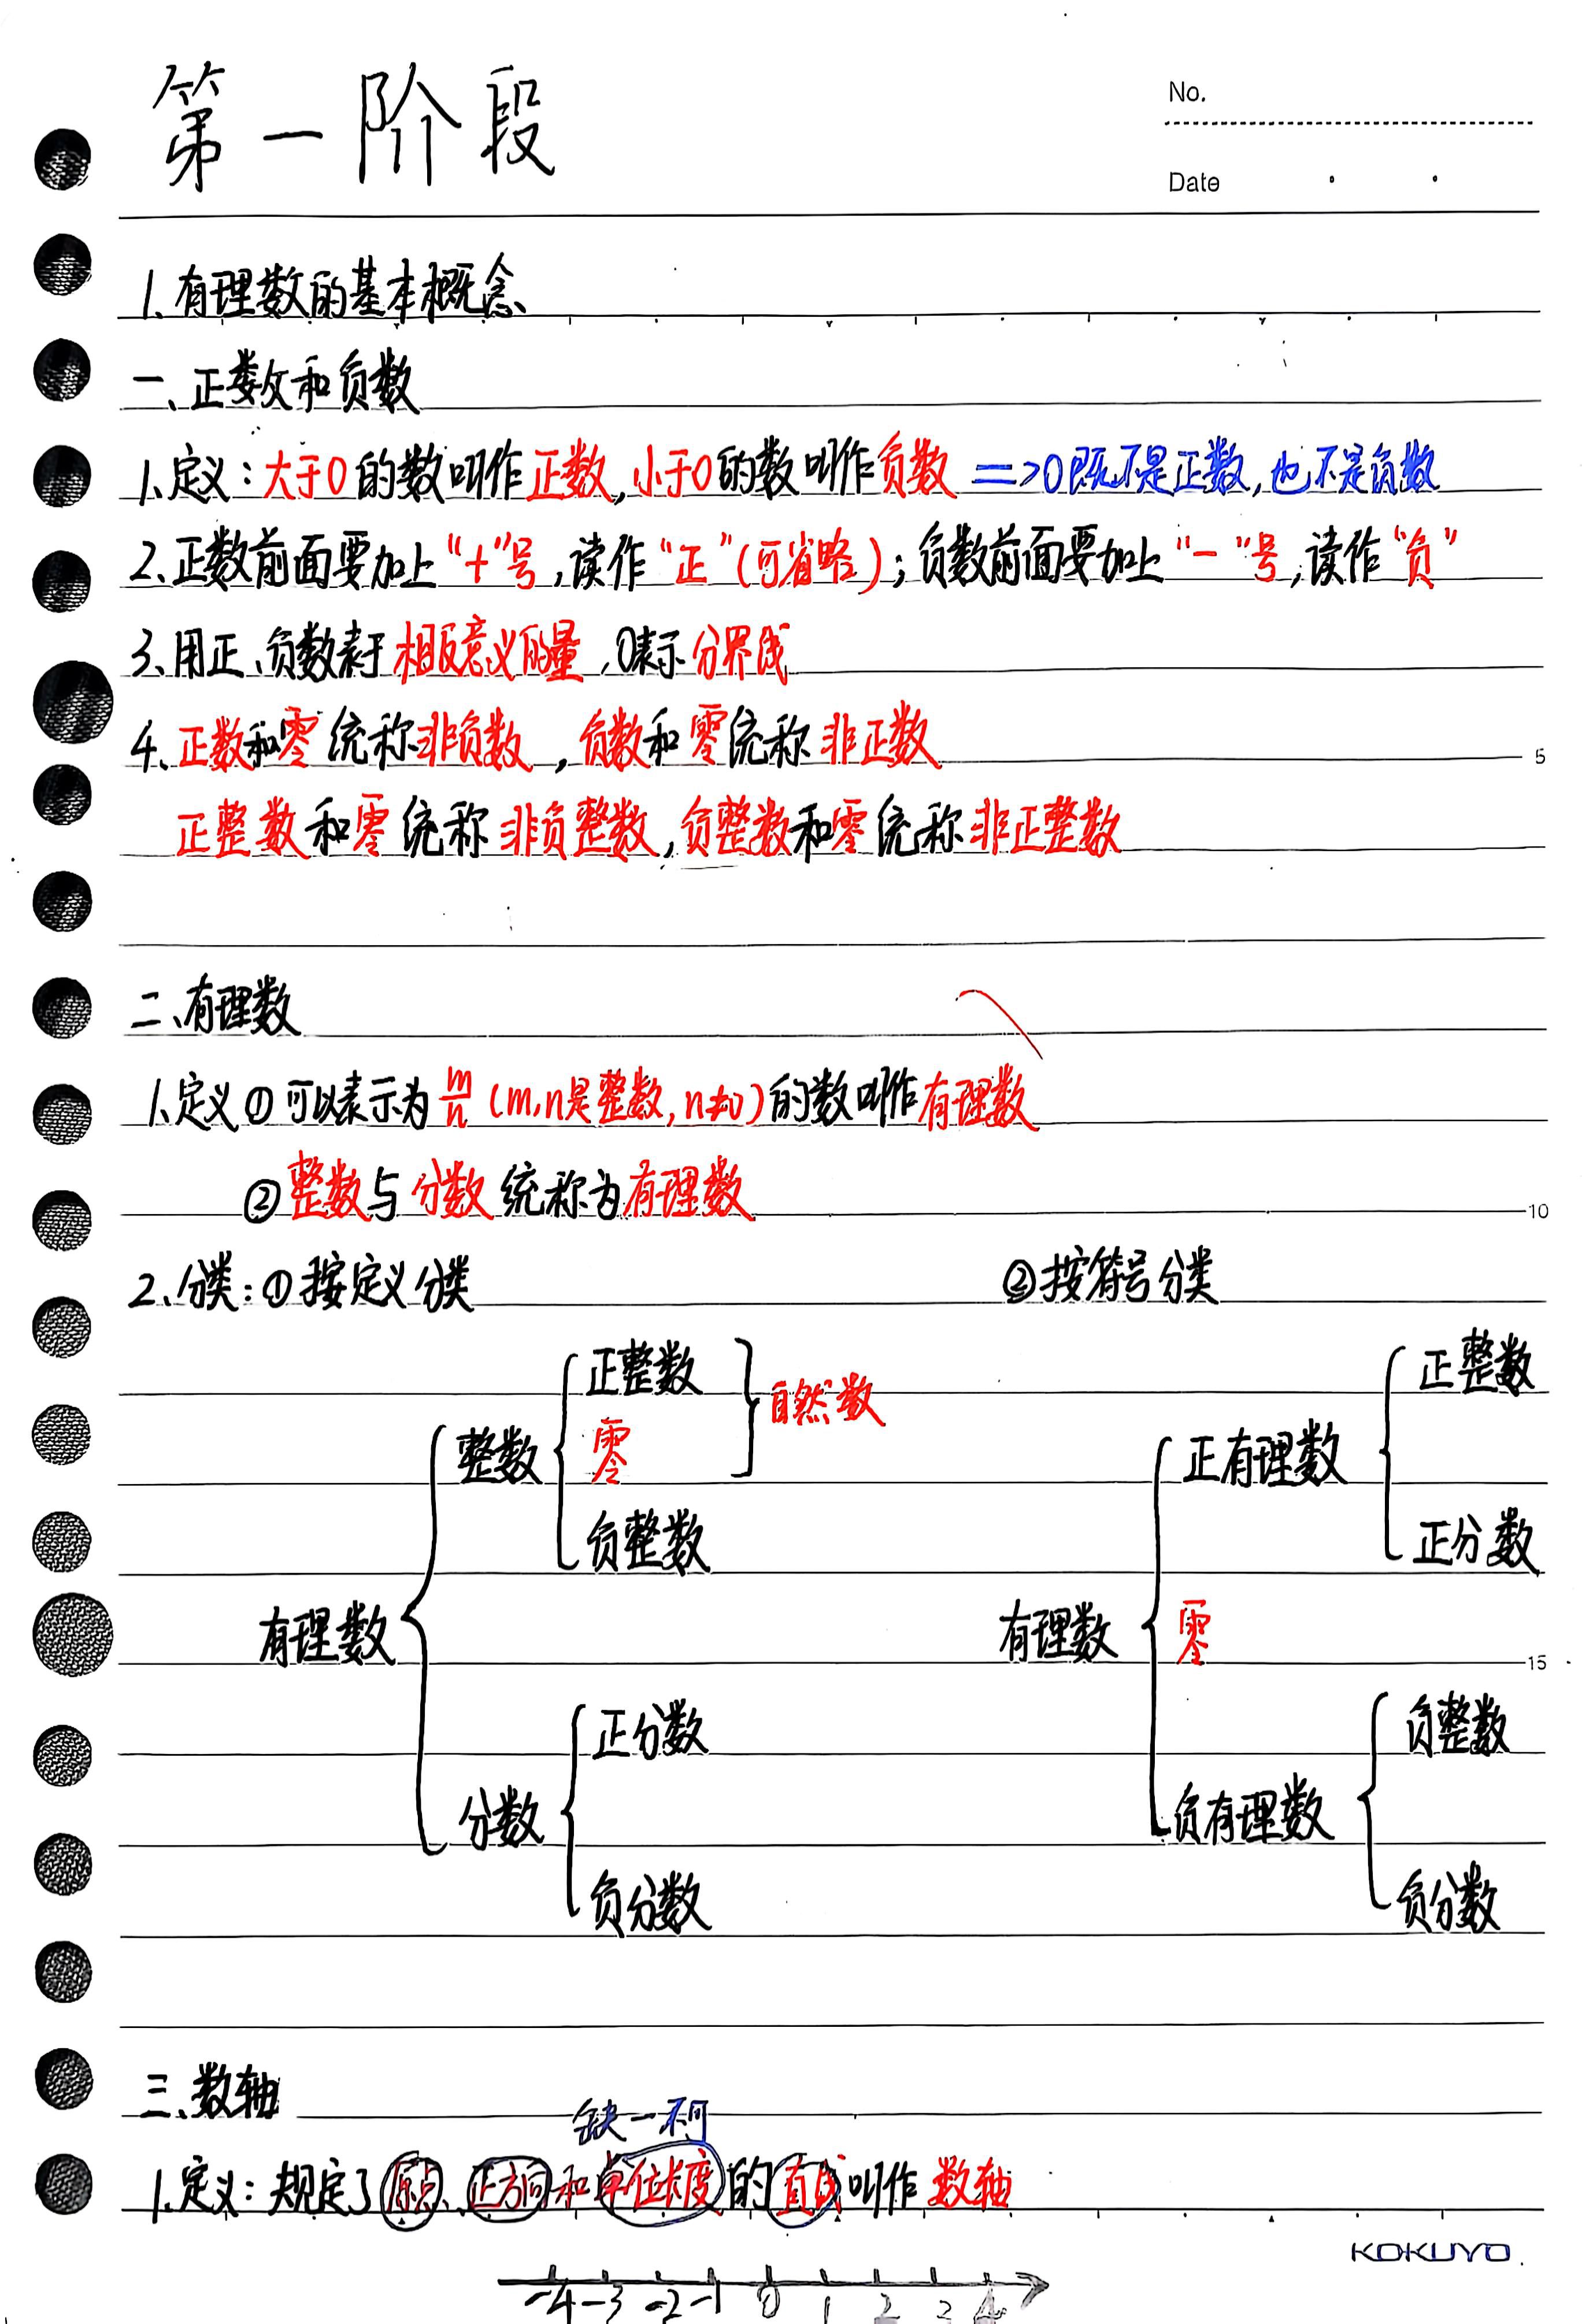 第一阶段
No.
Date
1、有理数的基本概念
一、正数和负数
1、定义：大于0的数叫作正数，小于0的数叫作负数 =>0既不是正数，也不是负数
2、正数前面要加上“+”号，读作“正”（可省略）；负数前面要加上“-”号，读作“负”
3、用正、负数表示相反意义的量，0表示分界线
4、正数和零统称非负数，负数和零统称非正数
5
正整数和零统称非负整数，负整数和零统称非正整数
二、有理数
1、定义①可以表示为m/n（m,n是整数，n≠0）的数叫作有理数
②整数与分数统称为有理数
10
2、分类：①按定义分类
②按符号分类
有理数
整数
正整数
零
自然数
负整数
分数
正分数
负分数
有理数
正有理数
正整数
正分数
零
15
负有理数
负整数
负分数
三、数轴
缺一不可
1、定义：规定了原点、正方向和单位长度的直线叫作数轴
KOKUYO
-4 -3 -2 -1 0 1 2 3 4